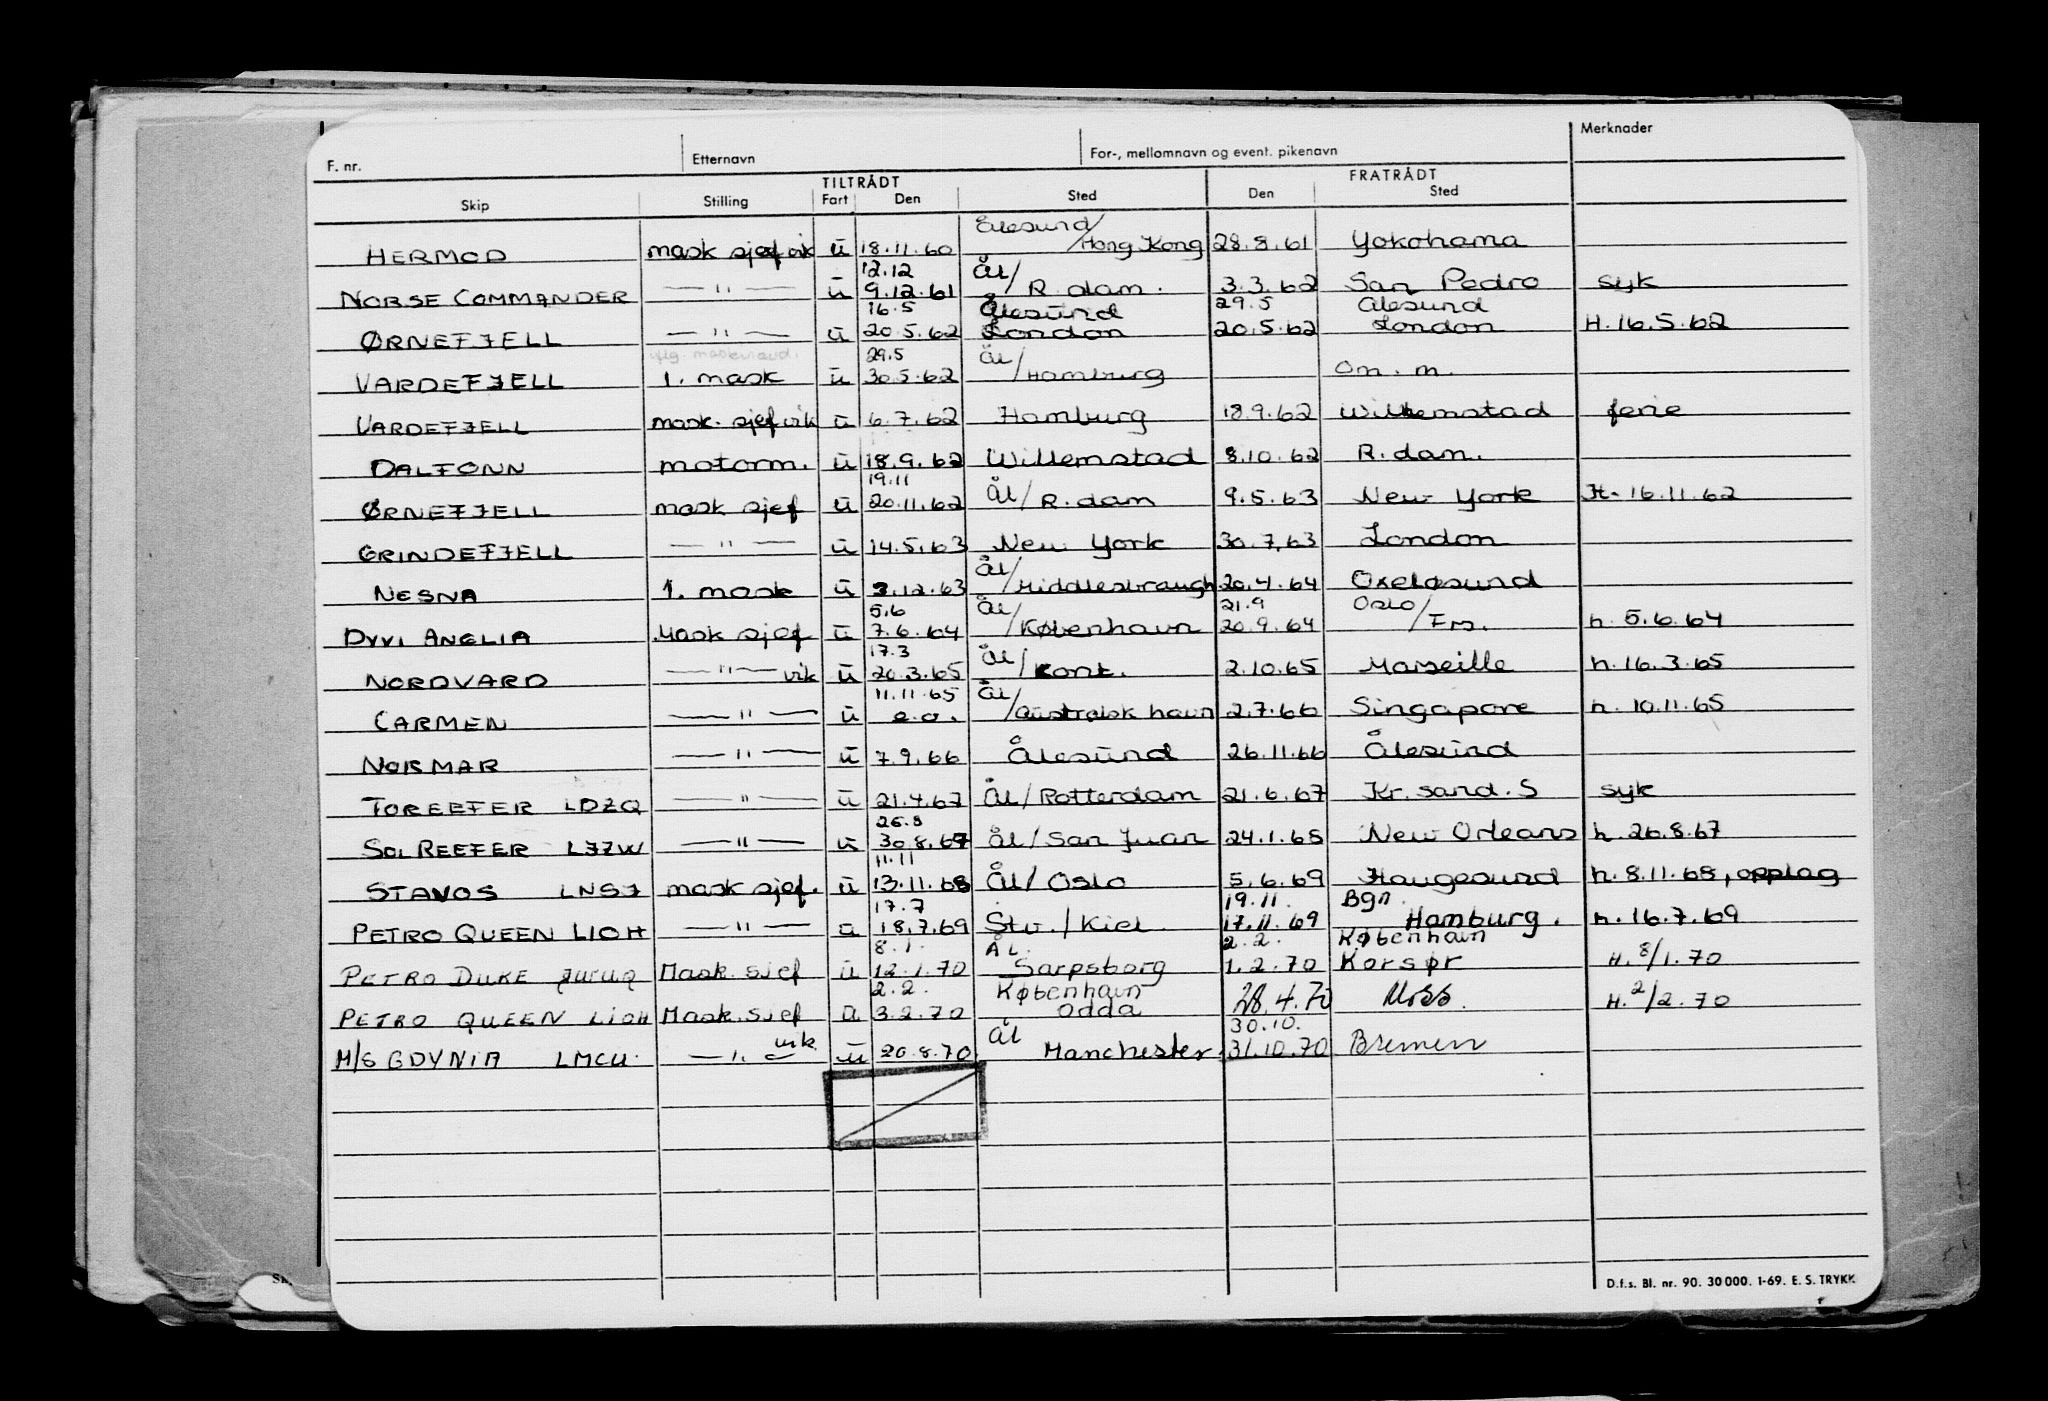 F. nr. Etternavn For-, mellomnavn og event. pikenavn Merknader
TILTRÅDT FRATRÅDT
Skip Stilling Fart Den Sted Den Sted
Ålesund/
HERMOD mask sjef vik u 18.11.60 Hong Kong 28.8.61 Yokohama
12.12 Ål/
NORSE COMMANDER —"— u 9.12.61 R.dam. 3.3.62 San Pedro syk
16.5 Ålesund 29.5 Ålesund
ØRNEFJELL —"— u 20.5.62 London 20.5.62 London H. 16.5.62
29.5 Ål/
VARDEFJELL 1. mask u 30.5.62 Hamburg Om. m.
VARDEFJELL mask. sjef vik u 6.7.62 Hamburg 18.9.62 Willemstad ferie
DALFONN motorm. u 18.9.62 Willemstad 8.10.62 R.dam.
19.11
ØRNEFJELL mask sjef u 20.11.62 Ål/R.dam 9.5.63 New York H. 16.11.62
GRINDEFJELL —"— u 14.5.63 New York 30.7.63 London
Ål/
NESNA 1. mask u 3.12.63 Middlesbraugh 20.4.64 Oxeløsund
5.6 Ål/ 21.9 Oslo/
DYVI ANGLIA Mask sjef u 7.6.64 København 20.9.64 Fm. h. 5.6.64
17.3 Ål/
NORDVARD —"— vik u 20.3.65 Kont. 2.10.65 Marseille h. 16.3.65
11.11.65 Ål/
CARMEN —"— u e.o. australsk havn 2.7.66 Singapore h. 10.11.65
NORMAR —"— u 7.9.66 Ålesund 26.11.66 Ålesund
TOREEFER LDZQ —"— u 21.4.67 Ål/Rotterdam 21.6.67 Kr.sand.S syk
26.8
SOL REEFER LJZW —"— u 30.8.67 Ål/San Juan 24.1.68 New Orleans h. 26.8.67
11.11
STAVOS LNSJ mask sjef. u 13.11.68 Ål/Oslo 5.6.69 Haugesund h. 8.11.68, opplag
17.7 19.11. Bgn.
PETRO QUEEN LIOH —"— u 18.7.69 Stv./Kiel 17.11.69 Hamburg. h. 16.7.69
8.1. ÅL. 2.2. København
PETRO DUKE Mask. sjef u 12.1.70 Sarpsborg 1.2.70 Korsør H. 8/1.70
2.2. København
PETRO QUEEN LIOH Mask. sjef u 3.2.70 Odda 28.4.70 Moss. H. 2/2.70
vik. Ål 30.10.
M/S GDYNIA LMCU. —"— u 20.8.70 Manchester 31.10.70 Bremen
D.f.s. Bl. nr. 90. 30 000. 1-69. E. S. TRYKK